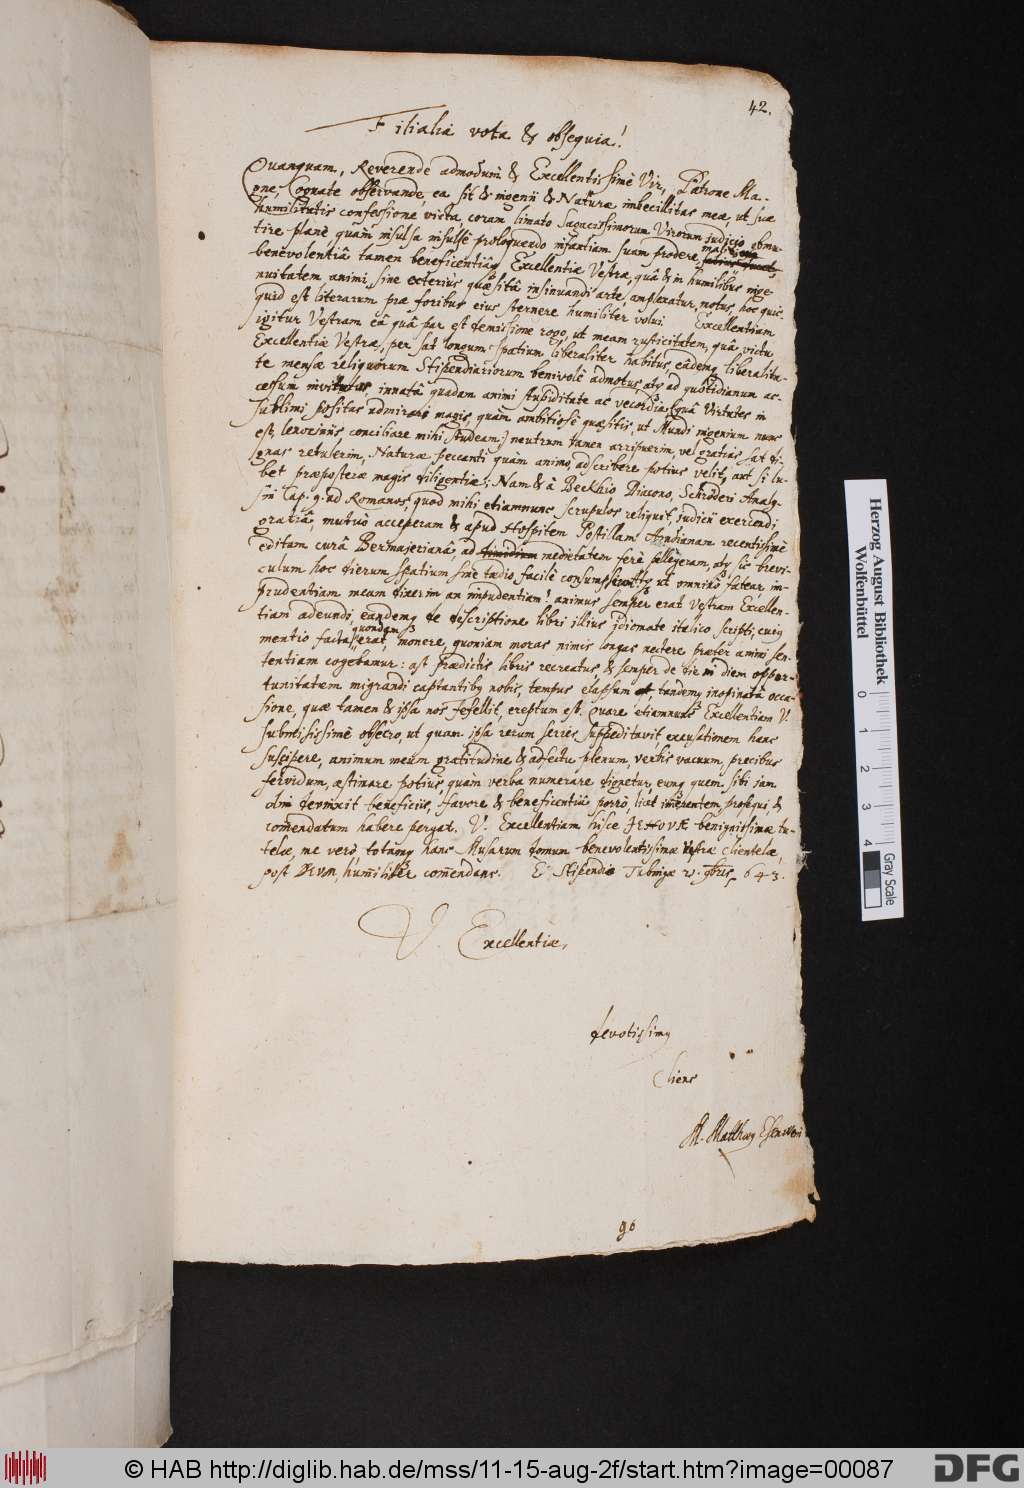 42.
Filialia vota & obsequia!
Quanquam, Reverende admodum & Excellentissime Vir, Patrone Ma-
gne, Cognate observande, ea sit & ingenii & Naturæ imbecillitas meæ, ut suæ
humilitatis confessione victa, coram limato sagacissimorum Virorum judicio obmu-
tire planè quàm insulsa insulsè proloquendo infantiam suam prodere
benevolentiâ tamen beneficentiâq Excellentiæ Vestræ, quâ & in humilibus inge-
nuitatem animi, sine exterius quæsitâ insinuandi arte, amplexatur, motus, hoc quic-
quid est literarum præ foribus eius sternere humiliter volui. Excellentiam
igitur Vestram eâ quâ par est demissione rogo, ut meam rusticitatem, quâ victu
Excellentiæ Vestræ, per sat longum spatium, liberaliter habitus, eâdemq liberalita-
te mensæ reliquorum Stipendiariorum benivolè admotus, atq ad quotidianum ac-
cessum invitatus, innatâ quadam animi stupiditate ac vecordia (quâ Virtutes in
sublimi positas admirari magis, quàm ambitiosè quæsitis, ut Mundi ingenium nunc
est, lenociniis, conciliare mihi studeam;) neutrum tamen arripuerim, vel gratias sat di-
gnas retulerim, Naturæ peccanti quàm animo, adscribere potius velit, aut si lu-
bet præposteræ magis diligentiæ; Nam & à Beckhio Diacono, Schröderi Analy-
sin Cap. 9. ad Romanos, quod mihi etiamnunc scrupulos reliquit, judicii exercendi
gratiâ, mutuò acceperam & apud Hospitem Postillam Arndianam recentissimè
editam curâ Bermajerianâ, ad medietatem ferè pellegeram, atq sic brevi-
culum hoc dierum spatium sine tædio, facilè ut omninò fatear im-
prudentiam meam dixerim an impudentiam! animus semper erat Vestram Excellen-
tiam adeundi, eandemq de descriptione libri illius jdiomate italico scripti, cuiq
mentio facta quondam erat, monere, quoniam moras nimis longas nectere præter animi sen-
tentiam cogebamur: ast prædictis libris recreatus & semper de die in diem oppor-
tunitatem migrandi captantibq nobis, tempus elapsum et tandemq inopinatâ occa-
sione, quæ tamen & ipsa nos fefellit, ereptum est. Quare etiamnunc Excellentiam V.
submississimè obsecro, ut quam ipsa rerum series suppeditavit, excusationem hanc
suscipere, animum meum gratitudine & adfectu plenum, verbis vacuum, precibus
fervidum, æstimare potius, quàm verba numerare dignetur, eumq quem sibi jam
olim devinxit beneficiis, favore & beneficentiâ porrò, licèt immerentem, prosequi &
comendatum habere pergat. V. Excellentiam hisce JEHOVÆ benignissimæ tu-
telæ, me verò totumq hanc Musarum domum benevolentissimæ Vestræ clientelæ,
post DEUM, humiliter comendans. E Stipendio Tubingæ 2. 9bris 643.
V. Excellentiæ,
devotissimq
Cliens
M. Matthæq Esenwein
90
Herzog August Bibliothek
Wolfenbüttel
0 1 2 3 4
Gray Scale
© HAB http://diglib.hab.de/mss/11-15-aug-2f/start.htm?image=00087
DFG